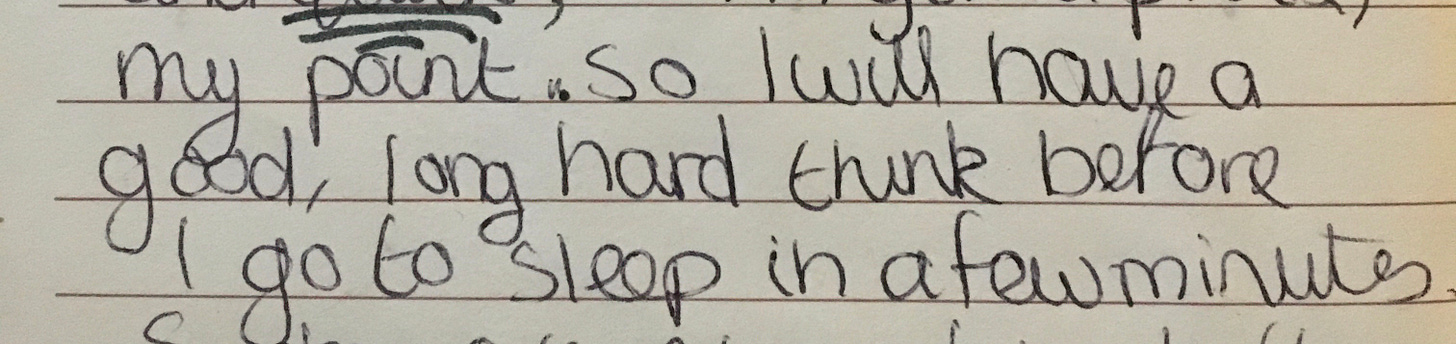 my point.. so I will have a
good, long hard think before
I go to sleep in a few minutes.